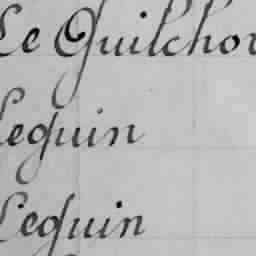 Le Guilchor
Lequin
Lequin